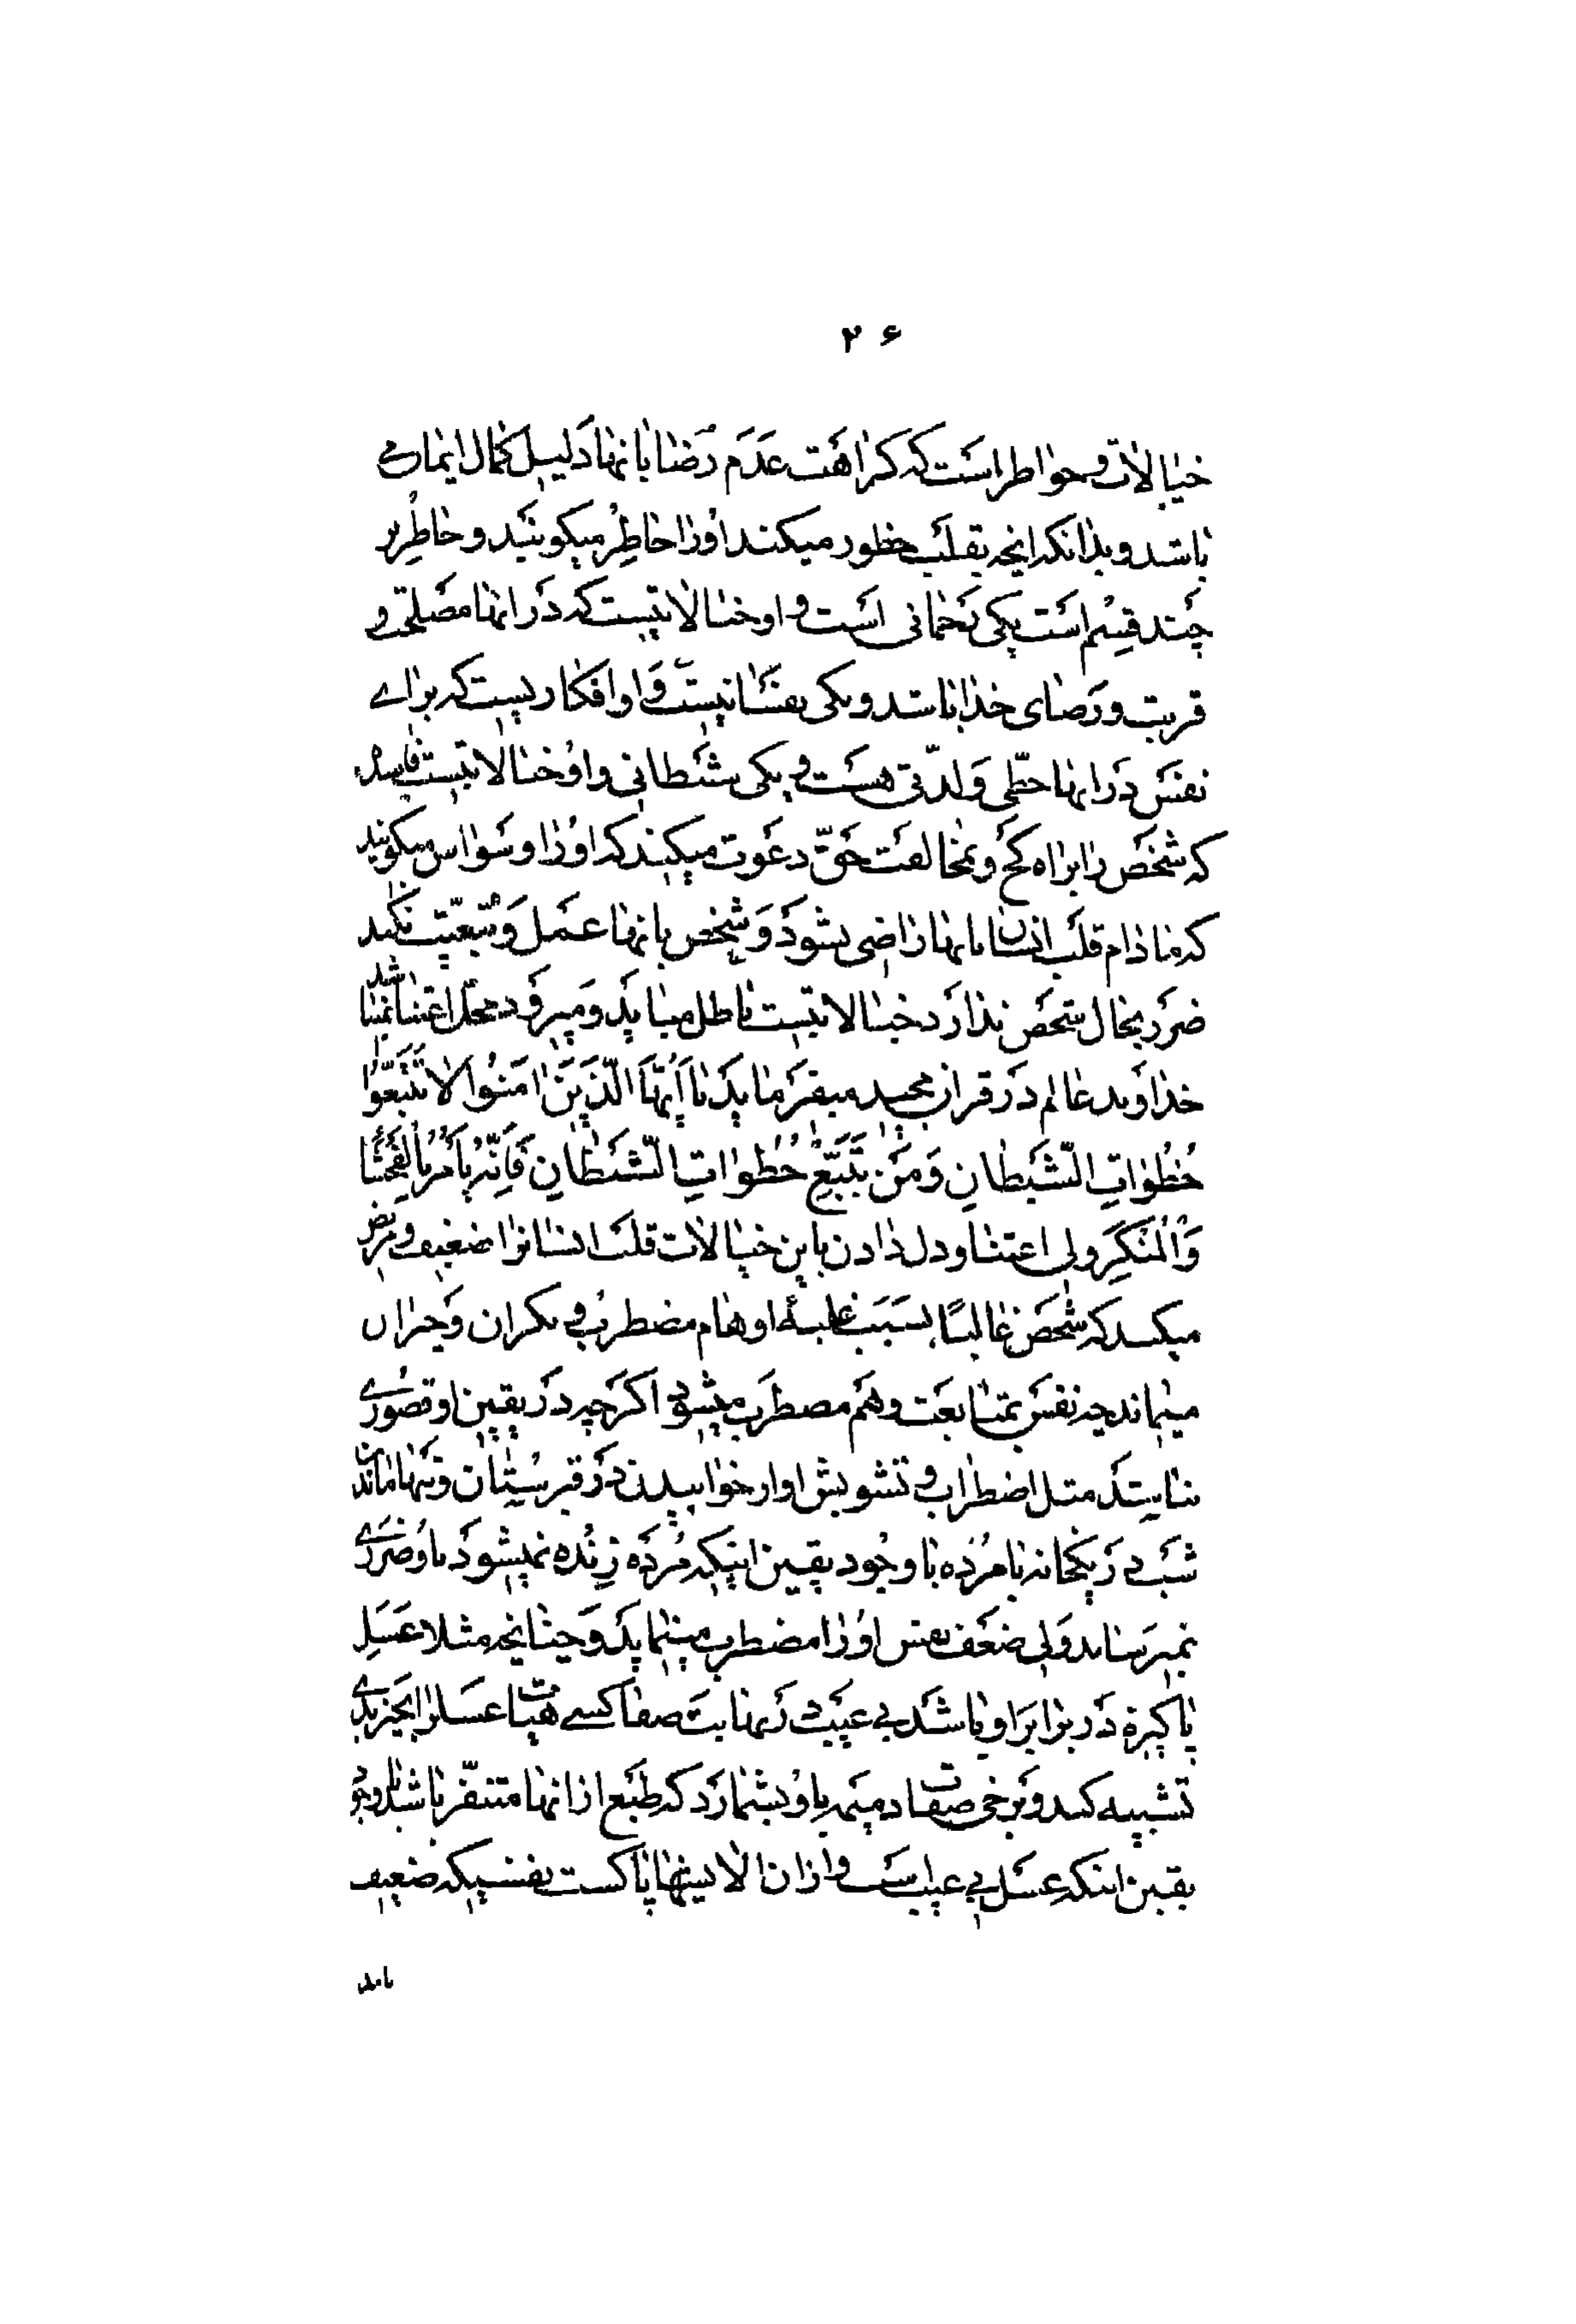 ۲۶
خیالات و خواطر است که کراهت عدم رضا بانها دلیل کمال ایمان می
باشد و بدانکه انچه بقلب خطور میکند اورا خاطر میکویند و خاطر بر
چند قسم است یکی رحمانی است و او خیالاتیست که در انها مصلحت و
قربت و رضای خدا باشد و یکی نفسانیست و او افکاریست که برای
نفس در انها حظّی و لذّتی هست و یکی شیطانی و او خیالاتیست فاسد
که شخص را براه کج و مخالفت حقّ دعوت میکند که اورا وسواس میکویند
که مادام قلب انسان بانها راضی نشود و شخص بانها عمل و تبعیّت نکند
ضرر بحال شخص ندارد خیالاتیست باطل میاید و میرود محلّ اعتنا نمیباشد
خداوند عالم در قران مجید میفرماید یا اَیُّهَا الَّذینَ امَنُوا لا تَتَّبِعُوا
خُطُواتِ الشَّیطانِ وَمَن یَتَّبِعْ خُطُواتِ الشَّیطانِ فَاِنَّهُ یَأمُرُ بِالفَحشا
وَالْمُنکَرِ ولی اعتنا و دل دادن باین خیالات قلب انسانرا ضعیف و مریض
میکند که شخص غالبًا بسبب غلبهٔ اوهام مضطرب و نکران و حیران
میماند چه نفس بمتابعت وهم مضطرب میشود اکرچه در یقین او قصوری
نباشد مثل اضطراب و تشویش او از خوابیدن در قبرستان و تنها ماندن
شب در یکخانه با مرده با وجود یقین اینکه مرده زنده نمیشود باو ضرری
نمیرساند ولی ضعف نفس اورا مضطرب مینماید و چنانچه مثلا عسل
پاکیزه در برابر او باشد بی عیب در نهایت صفا کسی هیات عسلرا بچیز بدی
تشبیه کند و برخی صفات ذمیمه باو بشمارد که طبع ازانها متنفّر باشد باوجود
یقین اینکه عسل بی عیب است و ازان الایشها پاکست نفسیکه ضعیف
باشد